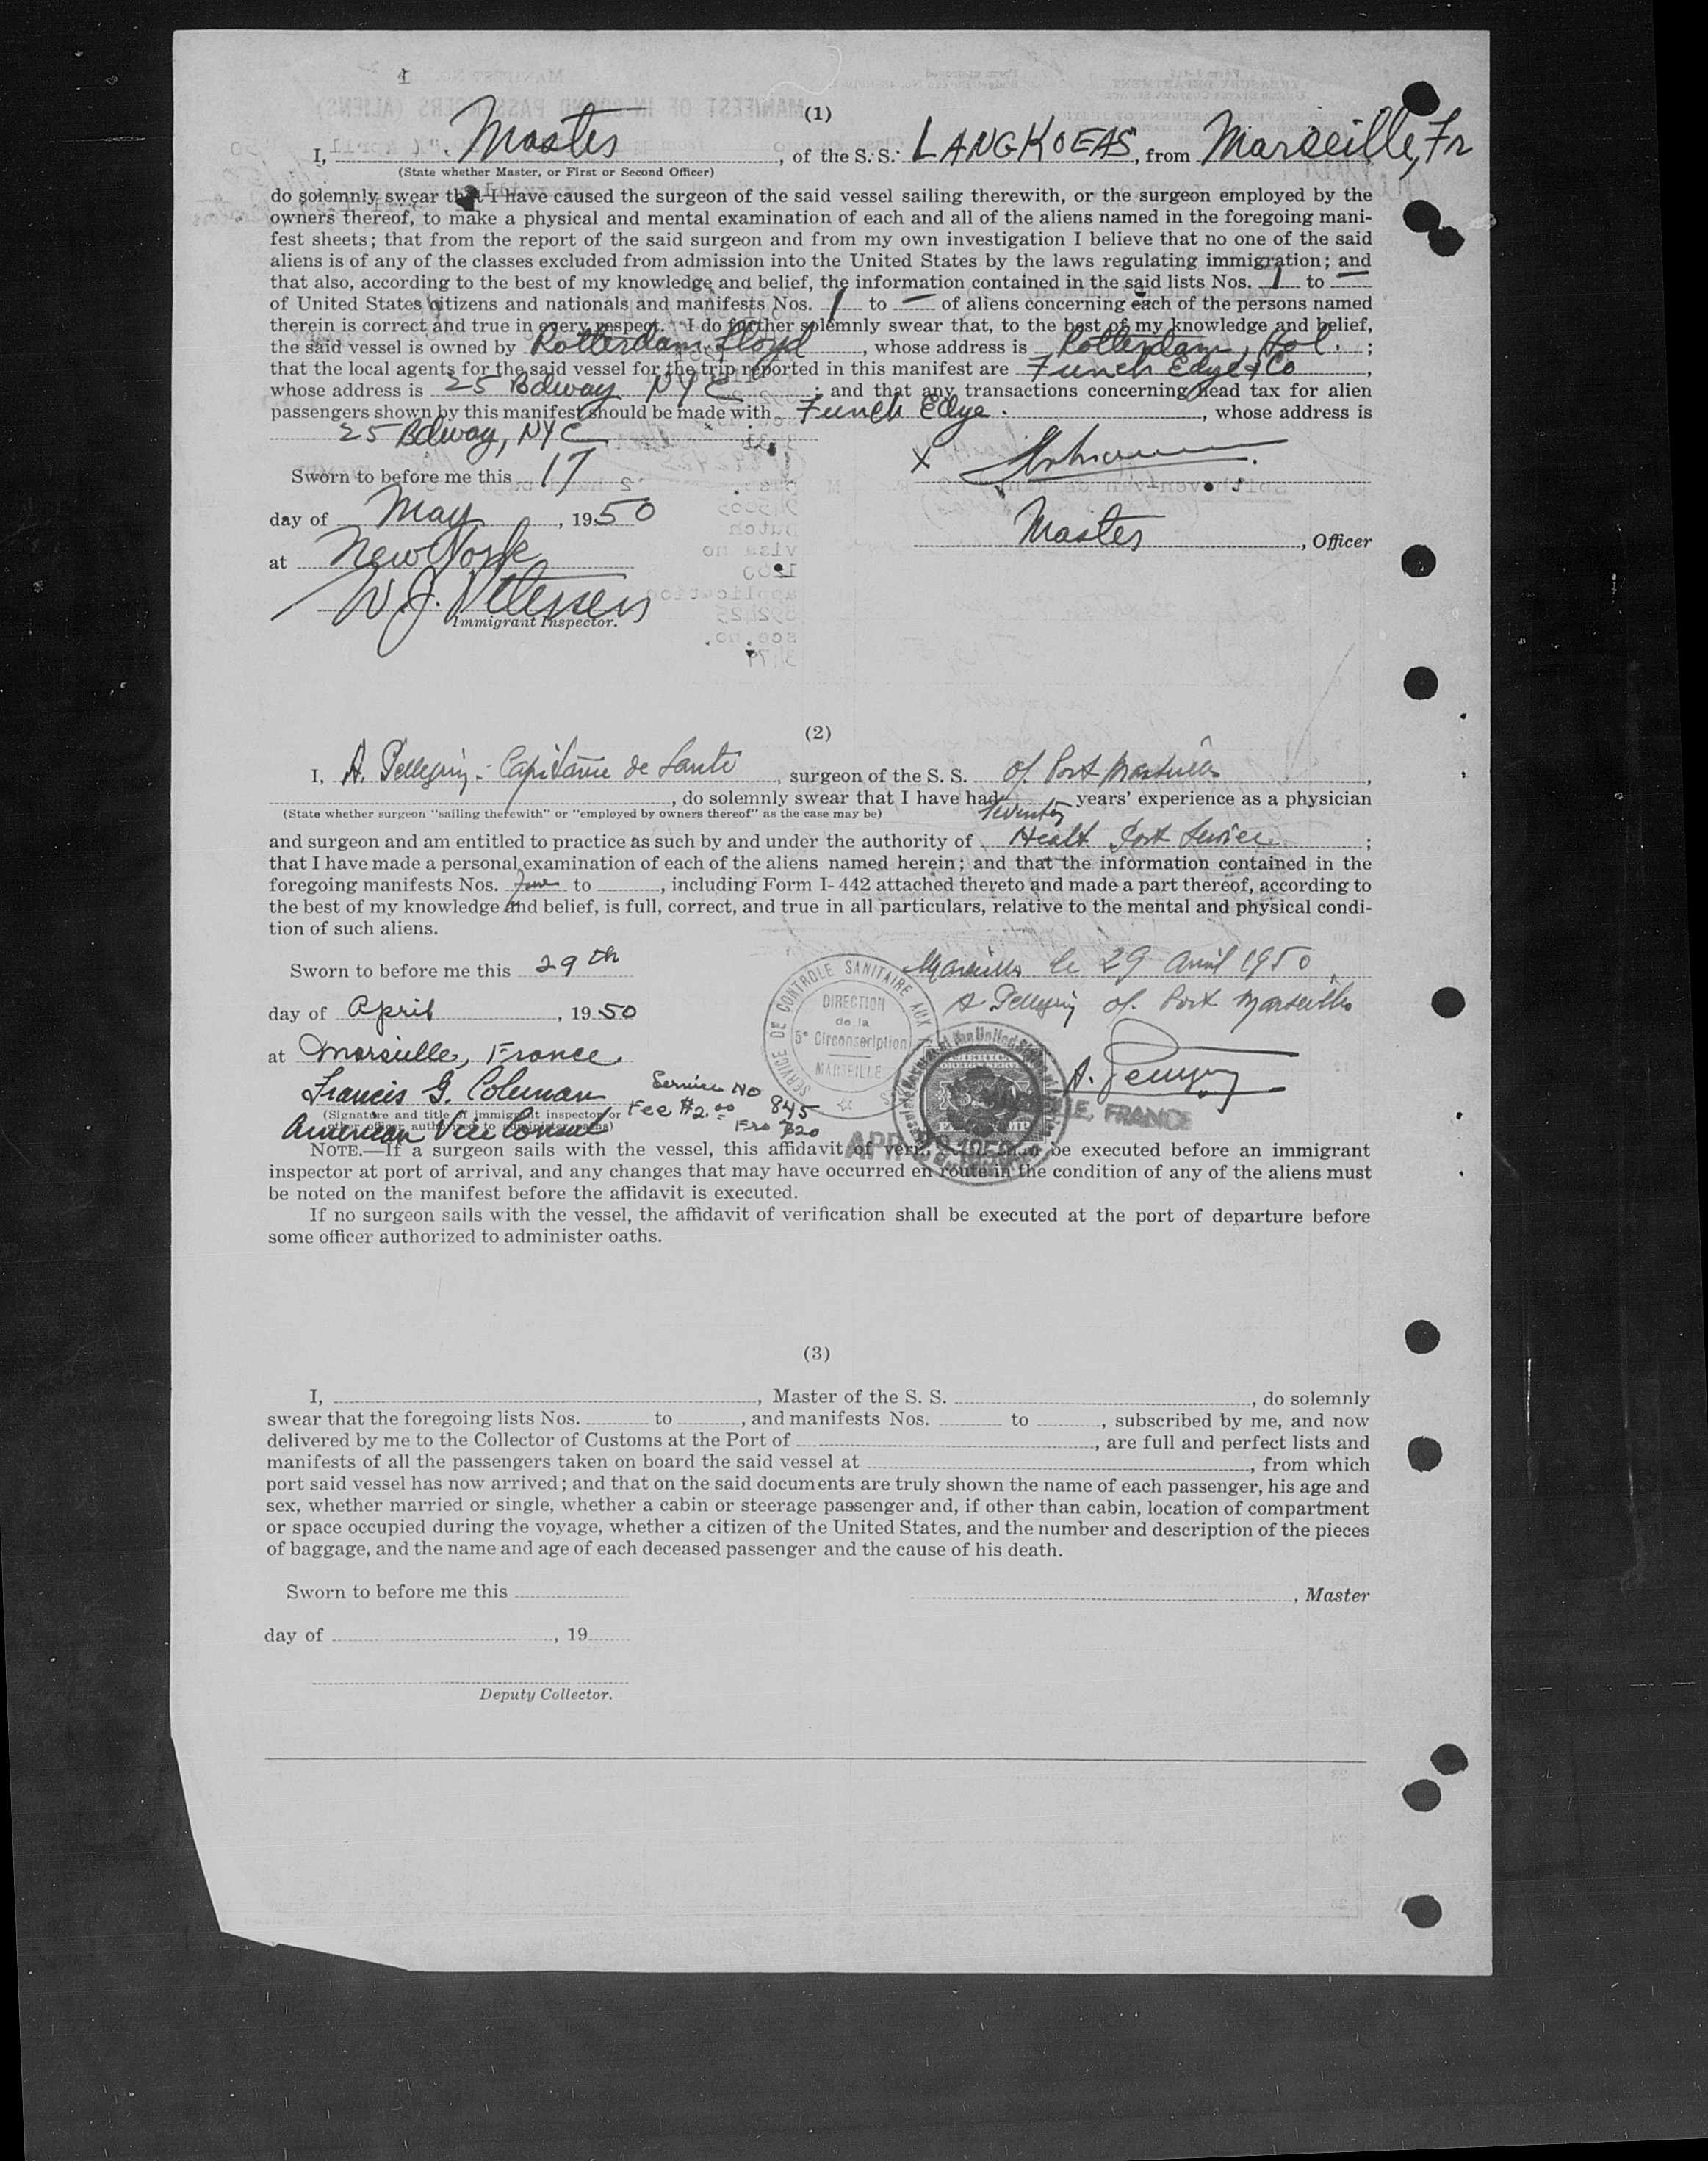 1
(1)
I, Master, of the S. S. LANGKOEAS, from Marseille, Fr
(State whether Master, or First or Second Officer)
do solemnly swear that I have caused the surgeon of the said vessel sailing therewith, or the surgeon employed by the
owners thereof, to make a physical and mental examination of each and all of the aliens named in the foregoing mani-
fest sheets; that from the report of the said surgeon and from my own investigation I believe that no one of the said
aliens is of any of the classes excluded from admission into the United States by the laws regulating immigration; and
that also, according to the best of my knowledge and belief, the information contained in the said lists Nos. 1 to —
of United States citizens and nationals and manifests Nos. 1 to — of aliens concerning each of the persons named
therein is correct and true in every respect. I do further solemnly swear that, to the best of my knowledge and belief,
the said vessel is owned by Rotterdam Lloyd, whose address is Rotterdam, Hol. ;
that the local agents for the said vessel for the trip reported in this manifest are Funch Edye & Co,
whose address is 25 Bdway NYC ; and that any transactions concerning head tax for alien
passengers shown by this manifest should be made with Funch Edye., whose address is
25 Bdway, NYC
Sworn to before me this 17
X
day of May, 1950
Master, Officer
at New York
W. J. Petersen
Immigrant Inspector.
(2)
I, A. Pellegrin - Capitaine de Santé, surgeon of the S. S. of Port Marseilles,
, do solemnly swear that I have had twenty years' experience as a physician
(State whether surgeon "sailing therewith" or "employed by owners thereof" as the case may be)
and surgeon and am entitled to practice as such by and under the authority of Healt Port Service ;
that I have made a personal examination of each of the aliens named herein; and that the information contained in the
foregoing manifests Nos. to , including Form I-442 attached thereto and made a part thereof, according to
the best of my knowledge and belief, is full, correct, and true in all particulars, relative to the mental and physical condi-
tion of such aliens.
Sworn to before me this 29th
Marseilles le 29 avril 1950
day of April, 1950
A. Pellegrin of Port Marseilles
at Marseille, France
SERVICE DE CONTROLE SANITAIRE AUX
DIRECTION
de la
5e Circonscription
MARSEILLE
A. Pellegrin
Francis G. Coleman
Service No 845
(Signature and title of immigrant inspector or
other officer authorized to administer oaths)
Fee $2.00
Frs 720
American Vice Consul
FRANCE
APR 29 1950
NOTE.—If a surgeon sails with the vessel, this affidavit of be executed before an immigrant
inspector at port of arrival, and any changes that may have occurred en route in the condition of any of the aliens must
be noted on the manifest before the affidavit is executed.
If no surgeon sails with the vessel, the affidavit of verification shall be executed at the port of departure before
some officer authorized to administer oaths.
(3)
I, , Master of the S. S. , do solemnly
swear that the foregoing lists Nos. to , and manifests Nos. to , subscribed by me, and now
delivered by me to the Collector of Customs at the Port of , are full and perfect lists and
manifests of all the passengers taken on board the said vessel at , from which
port said vessel has now arrived; and that on the said documents are truly shown the name of each passenger, his age and
sex, whether married or single, whether a cabin or steerage passenger and, if other than cabin, location of compartment
or space occupied during the voyage, whether a citizen of the United States, and the number and description of the pieces
of baggage, and the name and age of each deceased passenger and the cause of his death.
Sworn to before me this
, Master
day of , 19
Deputy Collector.